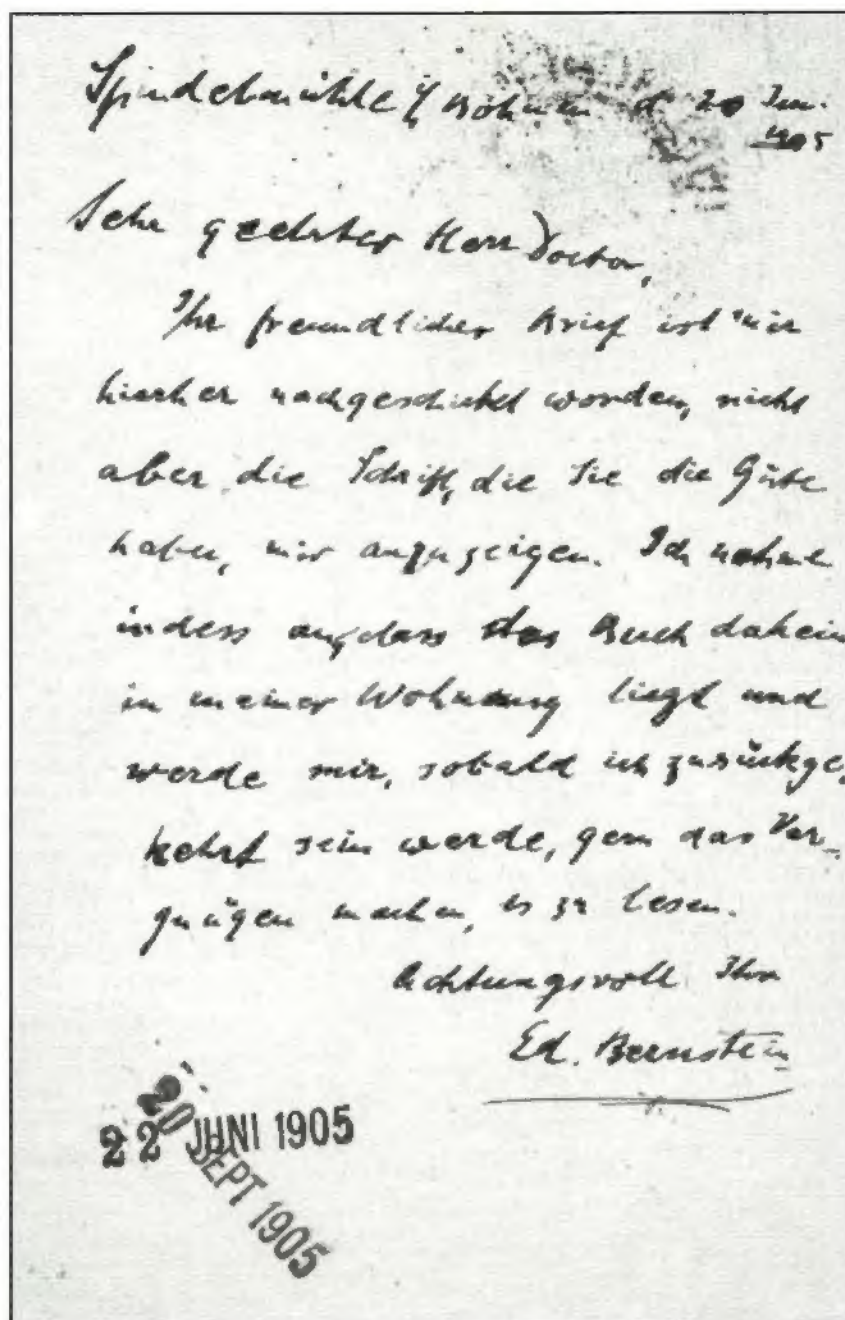 Spindelmühle i/ Böhmen d 20 Jun.
1905
Sehr geehrter Herr Doctor,
Ihr freundlicher Brief ist mir
hierher nachgeschickt worden, nicht
aber die Schrift, die Sie die Güte
haben, mir anzuzeigen. Ich nehme
indess an, dass das Buch daheim
in meiner Wohnung liegt und
werde mir, sobald ich zurückge-
kehrt sein werde, gern das Ver-
gnügen machen, es zu lesen.
Achtungsvoll Ihr
Ed. Bernstein
22 JUNI 1905
20 SEPT 1905